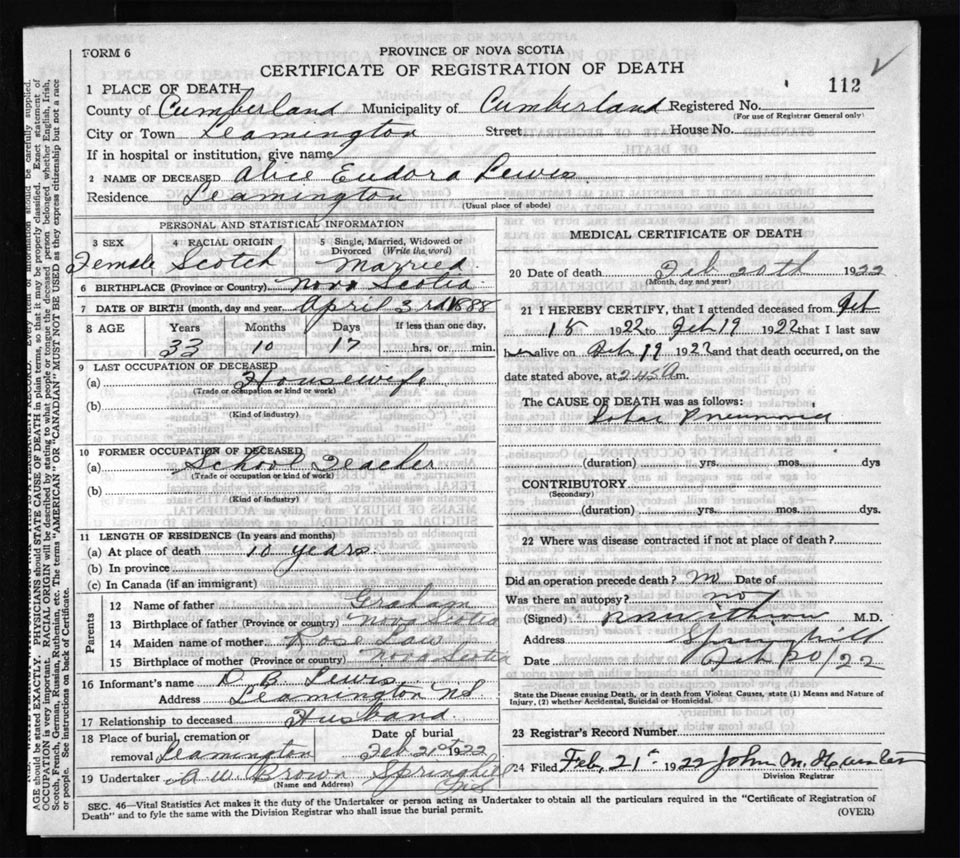 FORM 6
PROVINCE OF NOVA SCOTIA
CERTIFICATE OF REGISTRATION OF DEATH
112
1 PLACE OF DEATH
County of Cumberland Municipality of Cumberland Registered No.
(For use of Registrar General only)
City or Town Leamington Street House No.
If in hospital or institution, give name
2 NAME OF DECEASED Alice Eudora Lewis
Residence Leamington
(Usual place of abode)
PERSONAL AND STATISTICAL INFORMATION
3 SEX 4 RACIAL ORIGIN 5 Single, Married, Widowed or Divorced (Write the word)
Female Scotch Married
6 BIRTHPLACE (Province or Country) Nova Scotia
7 DATE OF BIRTH (month, day and year) April 3rd 1888
8 AGE Years Months Days If less than one day,
33 10 17 hrs. or min.
9 LAST OCCUPATION OF DECEASED
(a) Housewife
(Trade or occupation or kind or work)
(b)
(Kind of industry)
10 FORMER OCCUPATION OF DECEASED
(a) School Teacher
(Trade or occupation or kind of work)
(b)
(Kind of industry)
11 LENGTH OF RESIDENCE (In years and months)
(a) At place of death 10 years.
(b) In province
(c) In Canada (if an immigrant)
Parents
12 Name of father Graham
13 Birthplace of father (Province or country) Nova Scotia
14 Maiden name of mother Rose Law
15 Birthplace of mother (Province or country) Nova Scotia
16 Informant's name D. B. Lewis
Address Leamington NS
17 Relationship to deceased Husband
18 Place of burial, cremation or removal Leamington Date of burial Feb 21st 1922
19 Undertaker A W Brown Springhill NS
(Name and Address)
MEDICAL CERTIFICATE OF DEATH
20 Date of death Feb 20th 1922
(Month, day and year)
21 I HEREBY CERTIFY, that I attended deceased from Feb
15 1922 to Feb 19 1922 that I last saw
her alive on Feb 19 1922 and that death occurred, on the
date stated above, at 2.45 A m.
The CAUSE OF DEATH was as follows:
Lobar Pneumonia
(duration) yrs. mos. dys
CONTRIBUTORY
(Secondary)
(duration) yrs. mos. dys.
22 Where was disease contracted if not at place of death?
Did an operation precede death? No Date of
Was there an autopsy? no
(Signed) M.D.
Address Springhill
Date Feb 20/22
State the Disease causing Death, or in death from Violent Causes, state (1) Means and Nature of
Injury, (2) whether Accidental, Suicidal or Homicidal.
23 Registrar's Record Number
24 Filed Feb, 21st 1922 John M.
Division Registrar
SEC. 46—Vital Statistics Act makes it the duty of the Undertaker or person acting as Undertaker to obtain all the particulars required in the "Certificate of Registration of
Death" and to fyle the same with the Division Registrar who shall issue the burial permit.
(OVER)
AGE should be stated EXACTLY. PHYSICIANS should STATE CAUSE OF DEATH in plain terms, so that it may be properly classified. Exact statement of
OCCUPATION is very important. RACIAL ORIGIN will be described by stating to what people or tongue the deceased person belonged, whether English, Irish,
Scotch, French, German, Russian, Ruthenian, etc. The terms "AMERICAN" OR "CANADIAN" MUST NOT BE USED as they express citizenship but not a race
or people. See instructions on back of Certificate.